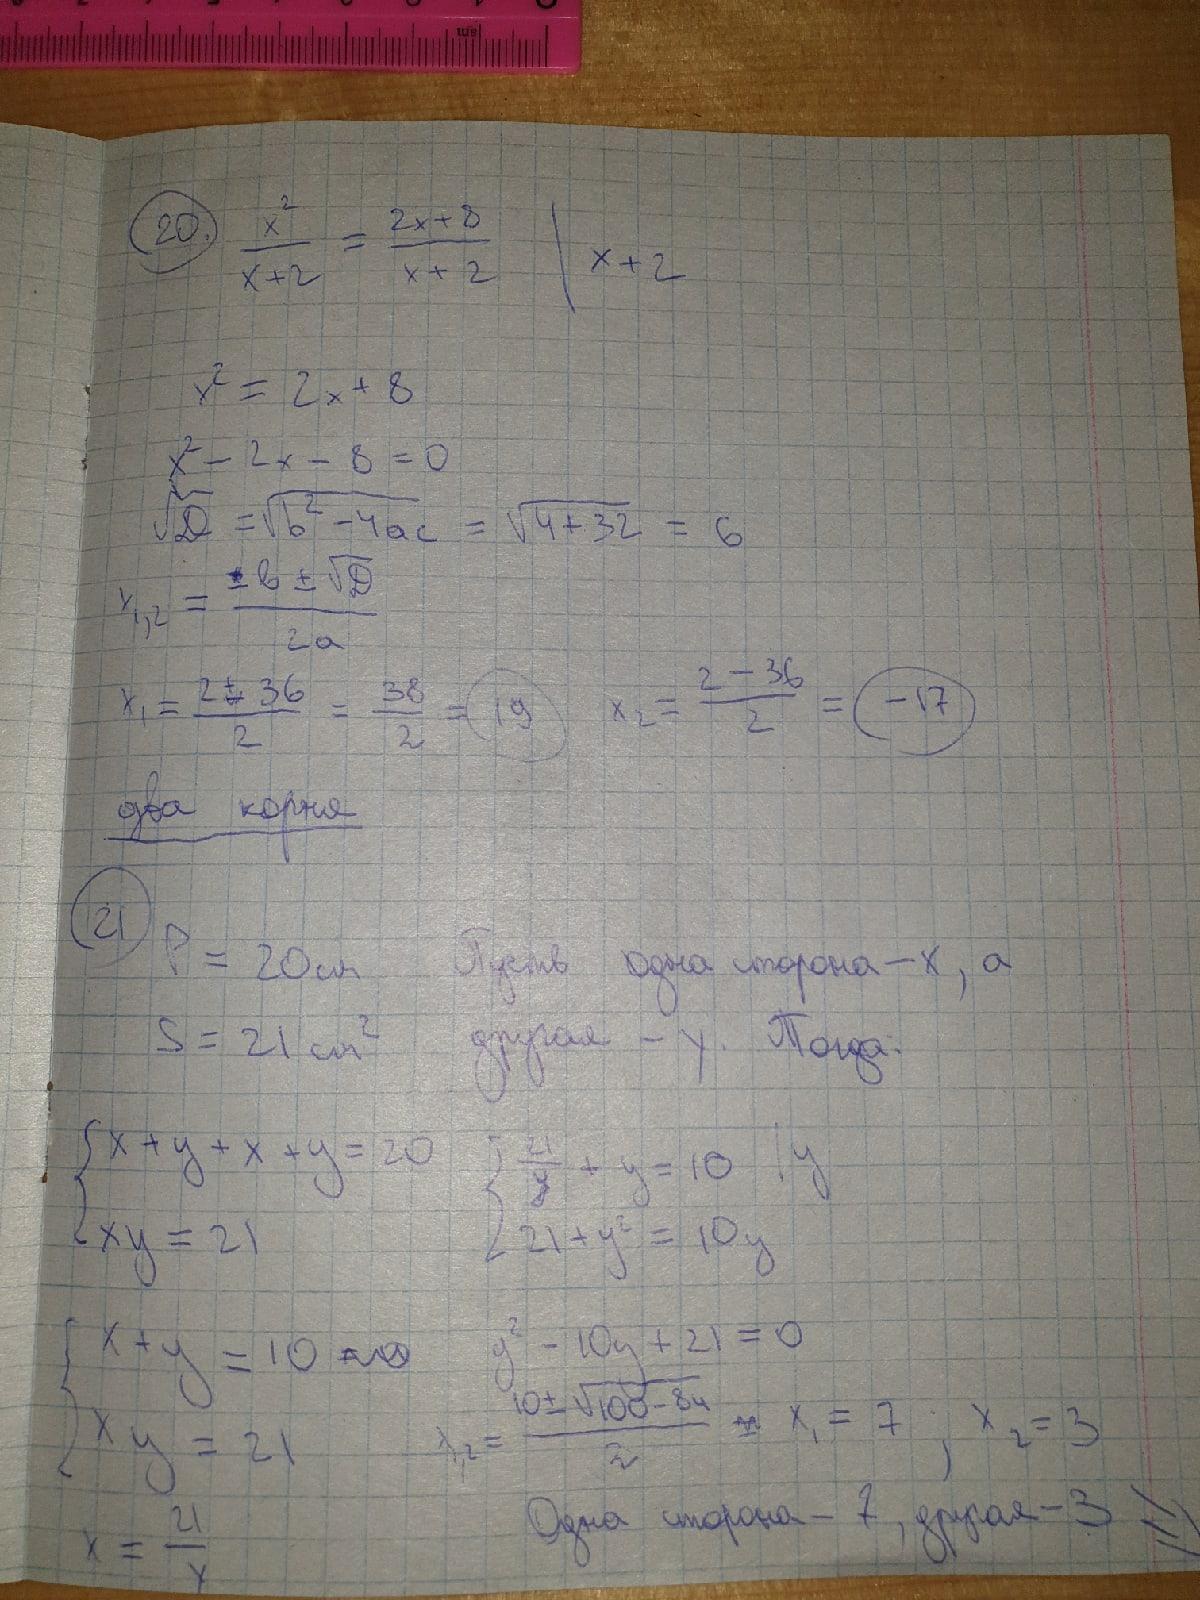 20. x²/(x+2) = (2x+8)/(x+2) | x+2
x² = 2x+8
x² - 2x - 8 = 0
√D = √(b² - 4ac) = √(4+32) = 6
x₁,₂ = (±b ± √D)/2a
x₁ = (2 + 36)/2 = 38/2 = 19 x₂ = (2 - 36)/2 = -17
два корня
21
P = 20 см Пусть одна сторона - x, а
S = 21 см² другая - y. Тогда:
{ x + y + x + y = 20
xy = 21
{ x + y = 10
xy = 21
x = 21/y
{ 21/y + y = 10 | y
21 + y² = 10y
y² - 10y + 21 = 0
x₁,₂ = (10 ± √(100 - 84))/2 = x₁ = 7, x₂ = 3
Одна сторона - 7, другая - 3